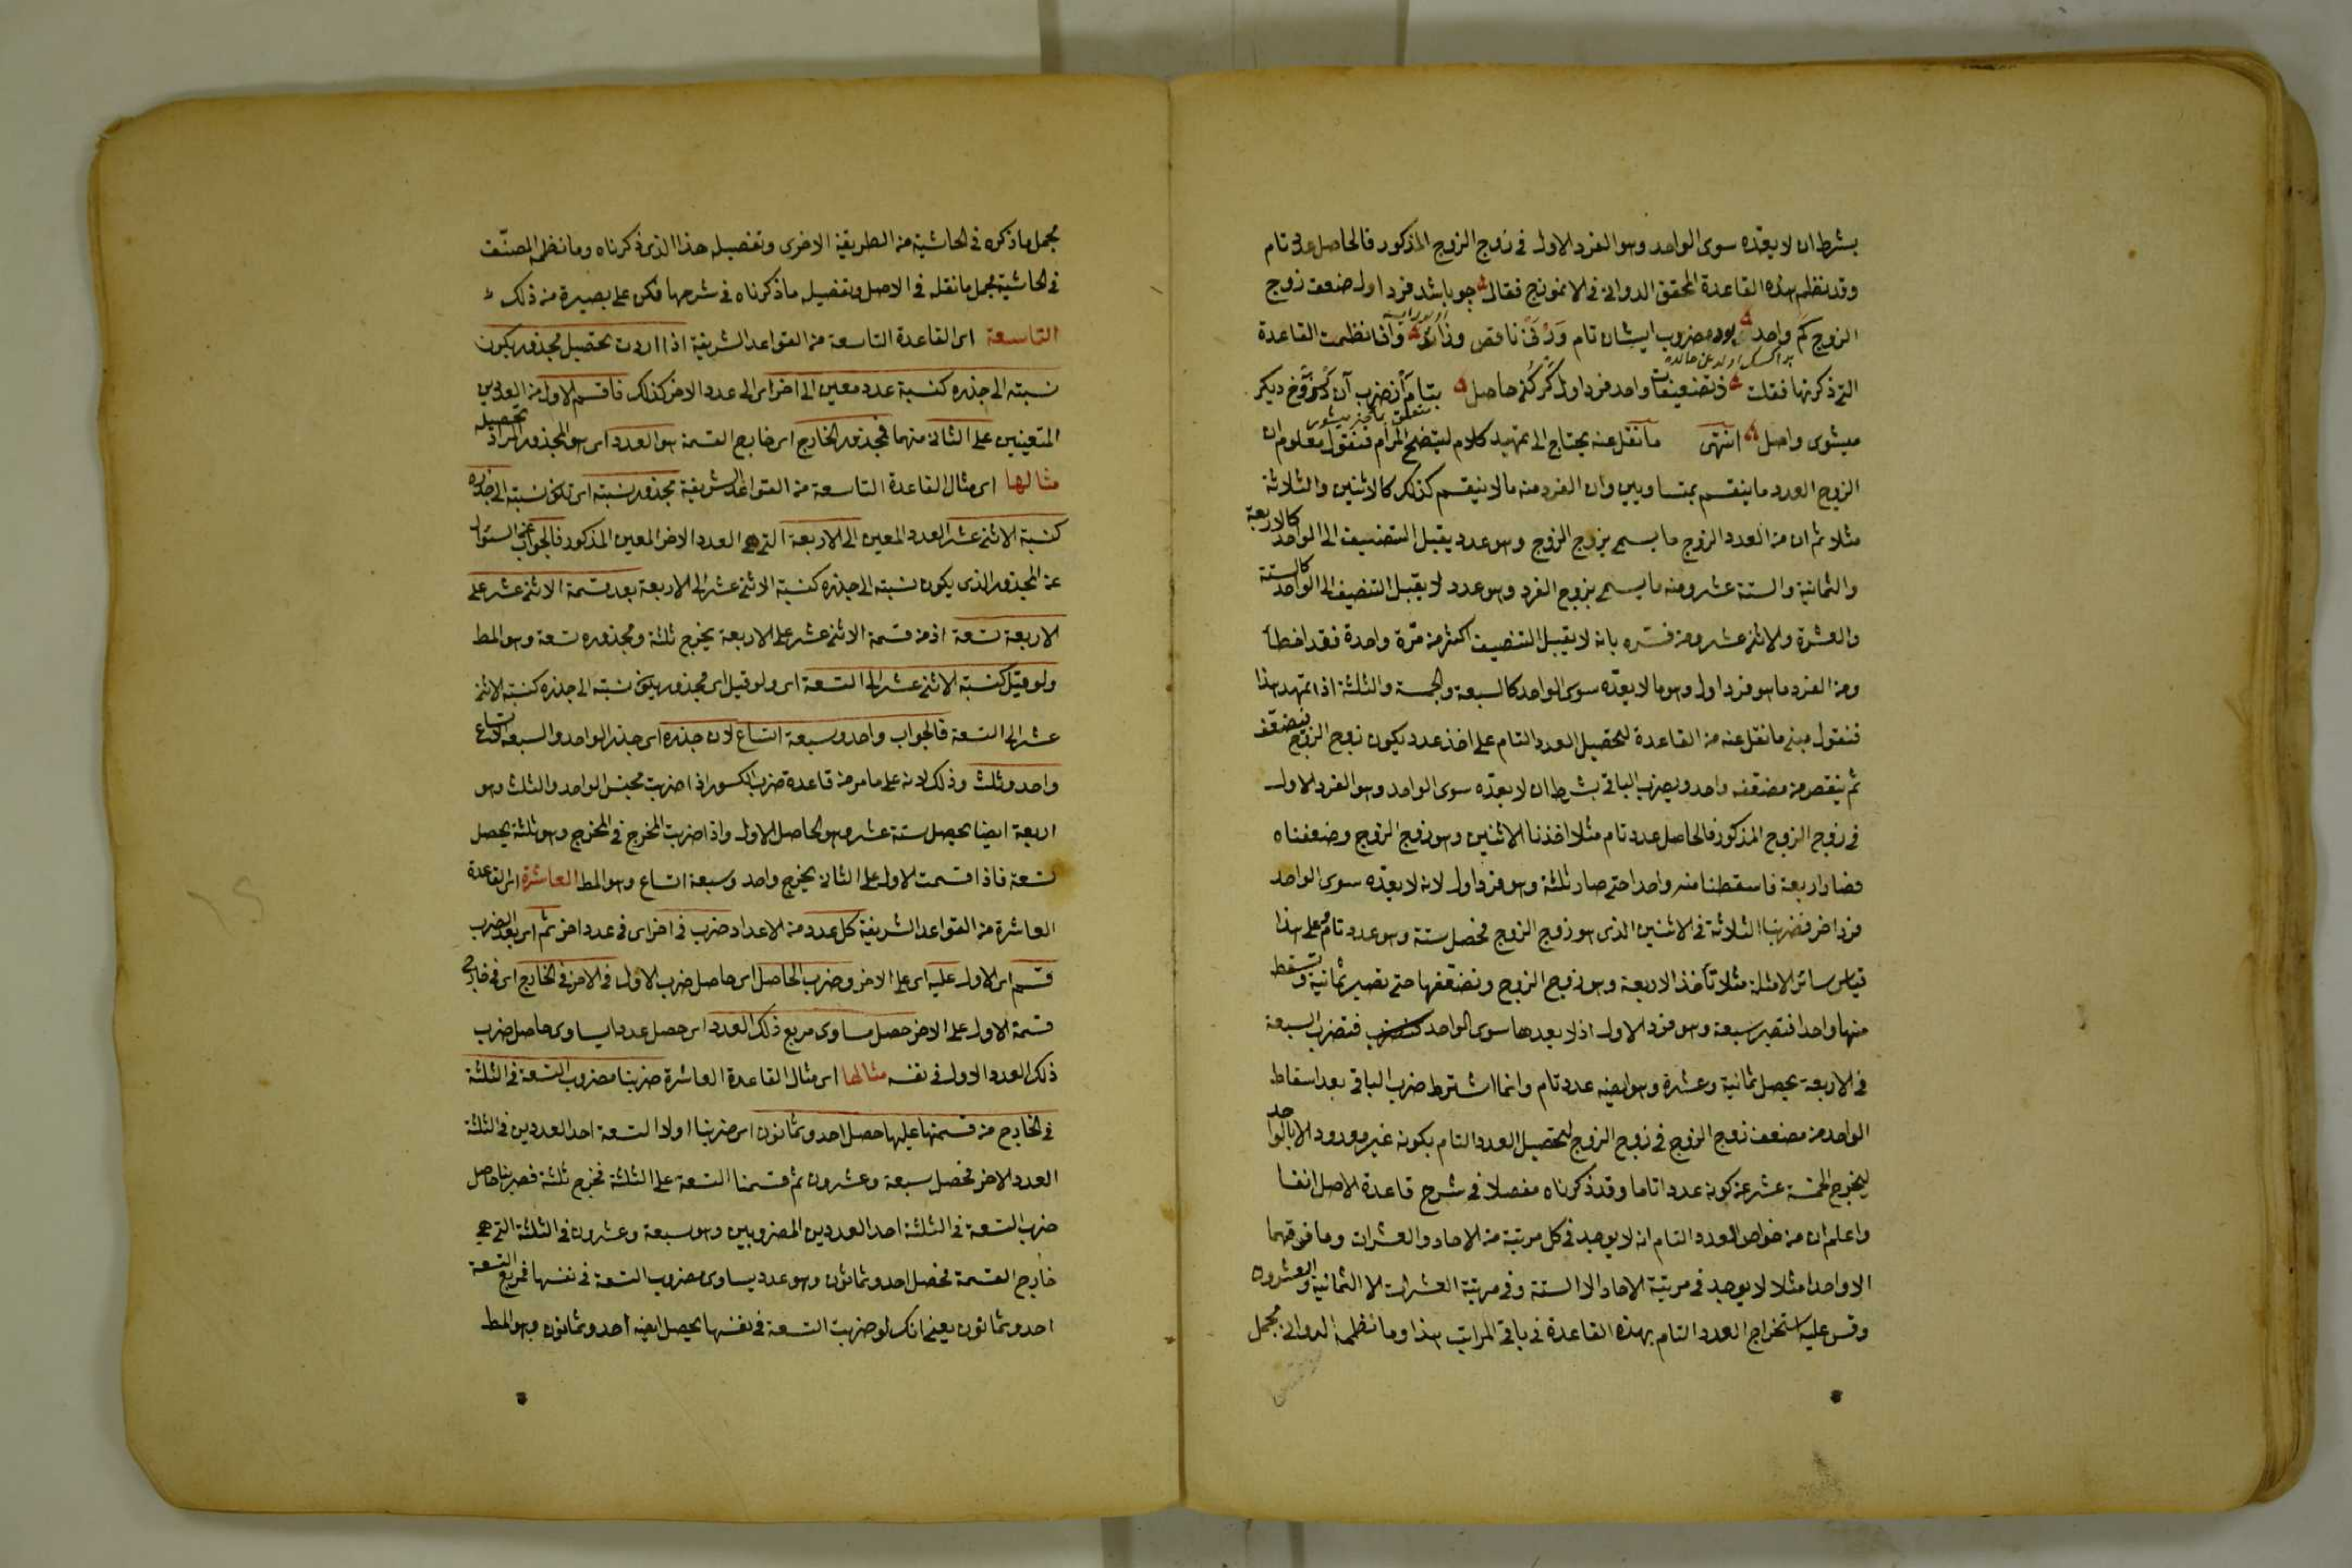 بشرط ان لا يعدّه سوى الواحد وهو الفرد الاول فى زوج الزوج المذكور فالحاصل عدد تام
وقد نظم هذه القاعدة المحقق الدوانى فى الانموذج فقال چو باشد فرد اول ضعف زوج
الزوج كم واحد بود مضروب ايشان تام ورنى ناقص وزائد وانا نظمت القاعدة
التى ذكرتها فقلت واحد فرد اول حاصل ضرب آن ديكر
ميشوى واصل انتهى ما نقل عنه يحتاج الى تمهيد كلام ليتضح المرام فنقول معلوم ان
الزوج العدد ما ينقسم بمتساويين وان الفرد منه ما لا ينقسم كذلك كالاثنين والثلاثة
مثلا ثم ان من العدد الزوج ما يسمى بزوج الزوج وهو عدد يقبل التنصيف الى الواحد كالاربعة
والثمانية والستة عشر ومنه ما يسمى بزوج الفرد وهو عدد لا يقبل التنصيف الى الواحد كالستة
والعشرة والاثنى عشر ومن فسّره بانه لا يقبل التنصيف اكثر من مرّة واحدة فقد اخطأ
ومن الفرد ما هو فرد اول وهو ما لا يعدّه سوى الواحد كالسبعة والخمسة والثلثة اذا تمهد هذا
فنقول مبنى ما نقل عنه من القاعدة لتحصيل العدد التام على اخذ عدد يكون زوج الزوج فيضعّف
ثم ينقص من مضعّفه واحد ويضرب الباقى بشرط ان لا يعدّه سوى الواحد وهو الفرد الاول
فى زوج الزوج المذكور فالحاصل عدد تام مثلا اخذنا الاثنين وهو زوج الزوج وضعفناه
فصار اربعة فاسقطنا منه واحدا حتى صار ثلثة وهو فرد اول لانه لا يعدّه سوى الواحد
فرد اخر فضربنا الثلاثة فى الاثنين الذى هو زوج الزوج فحصل ستة وهو عدد تام وعلى هذا
قياس سائر الامثلة مثلا تأخذ الاربعة وهو زوج الزوج وتضعّفها حتى تصير ثمانية وتسقط
منها واحدا فتصير سبعة وهو فرد الاول اذ لا يعدها سوى الواحد فتضرب السبعة
فى الاربعة يحصل ثمانية وعشرة وهو ايضا عدد تام وانما اشترط ضرب الباقى بعد اسقاط
الواحد من مضعف زوج الزوج فى زوج الزوج لتحصيل العدد التام بكونه غير معدود الا بالواحد
ليخرج الخمسة عشر عن كونه عددا تاما وقد ذكرناه مفصلا فى شرح قاعدة الاصل انفا
واعلم ان من خواص العدد التام انه لا يوجد فى كل مرتبة من الاحاد والعشرات وما فوقهما
الا واحدا مثلا لا يوجد فى مرتبة الاحاد الا الستة وفى مرتبة العشرات الا الثمانية والعشرون
وقس عليه استخراج العدد التام بهذه القاعدة فى باقى المراتب هذا وما نظمه الدوانى مجمل
مجمل ما ذكره فى الحاشية من الطريقة الاخرى وتفصيله هذا الذى ذكرناه وما نظمه المصنّف
فى الحاشية مجمل ما نقله فى الاصل وتفصيله ما ذكرناه فى شرحها فكن على بصيرة من ذلك
التاسعة اى القاعدة التاسعة من القواعد الشريفة اذا اردت تحصيل مجذور يكون
نسبته الى جذره كنسبة عدد معين الى اخر اى الى عدد الاخر كذلك فاقسم الاول من العددين
المتعينين على الثانى منهما فمجذور الخارج اى خارج القسمة هو العدد اى هو المجذور المراد تحصيله
مثالها اى مثال القاعدة التاسعة من القواعد الشريفة مجذور نسبته اى تكون نسبته الى جذره
كنسبة الاثنى عشر العدد المعين الى الاربعة التى هى العدد الاخر المعين المذكور فالجواب عن السؤال
عن المجذور الذى يكون نسبته الى جذره كنسبة الاثنى عشر الى الاربعة بعد قسمة الاثنى عشر على
الاربعة تسعة اذ من قسمة الاثنى عشر على الاربعة يخرج ثلثة ومجذوره تسعة وهو المط
ولو قيل كنسبة الاثنى عشر الى التسعة اى ولو قيل اى مجذور يكون نسبته الى جذره كنسبة الاثنى
عشر الى التسعة فالجواب واحد وسبعة اتساع لان جذره اى جذر الواحد والسبعة الاتساع
واحد وثلث وذلك لانه على ما مر من قاعدة ضرب الكسور اذا ضربت مجنس الواحد والثلث وهو
اربعة ايضا يحصل ستة عشر وهو الحاصل الاول واذا ضربت المخرج فى المخرج وهو ثلثة يحصل
تسعة فاذا قسمت الاول على الثانى يخرج واحد وسبعة اتساع وهو المط العاشرة اى القاعدة
العاشرة من القواعد الشريفة كل عدد من الاعداد ضرب فى اخر اى فى عدد اخر ثم اى بعد الضرب
قسم اى الاول عليه اى على الاخر وضرب الحاصل اى حاصل ضرب الاول فى الاخر فى الخارج اى فى خارج
قسمة الاول على الاخر حصل مساوى مربع ذلك العدد اى حصل عدد ما يساوى حاصل ضرب
ذلك العدد الاول فى نفسه مثالها اى مثال القاعدة العاشرة ضربنا مضروب التسعة فى الثلثة
فى الخارج من قسمتها عليها حصل احد وثمانون اى ضربنا اولا التسعة احد العددين فى الثلثة
العدد الاخر فحصل سبعة وعشرون ثم قسمنا التسعة على الثلثة فخرج ثلثة فضربنا حاصل
ضرب التسعة فى الثلثة احد العددين المضروبين وهو سبعة وعشرون فى الثلثة التى هى
خارج القسمة فحصل احد وثمانون وهو عدد يساوى مضروب التسعة فى نفسها فمربع التسعة
احد وثمانون يعنى انك لو ضربت التسعة فى نفسها يحصل ايضا احد وثمانون وهو المط